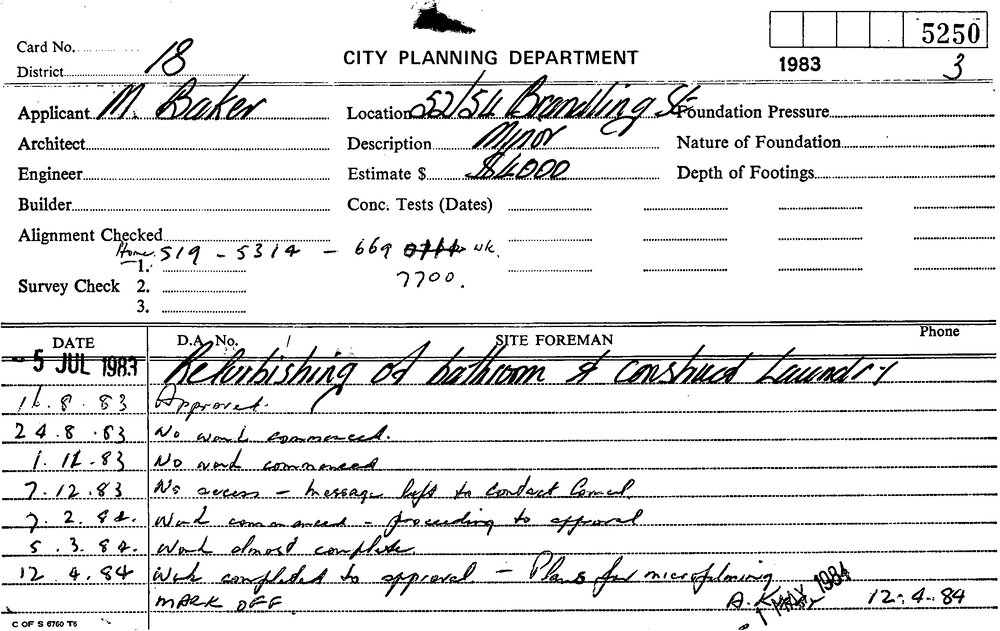 5250
Card No.
CITY PLANNING DEPARTMENT
1983
3
District 18
Applicant M. Baker Location 52/54 Brandling St Foundation Pressure
Architect Description Minor Nature of Foundation
Engineer Estimate $ $4000 Depth of Footings
Builder Conc. Tests (Dates)
Alignment Checked
Home 519 - 5314 - 669 wk.
1.
7700.
Survey Check 2.
3.
DATE D.A. No. SITE FOREMAN Phone
- 5 JUL 1983 Refurbishing of bathroom & construct Laundry
8.83 Approved.
24.8.83 No work commenced.
1.11.83 No work commenced
7.12.83 No access - message left to contact Council
7.2.84. Work commenced - proceeding to approval
5.3.84. Work almost complete.
12.4.84 Work completed to approval - Plans for microfilming
MARK OFF. 1 MAY 1984 12.4.84
C OF S 6760 T6